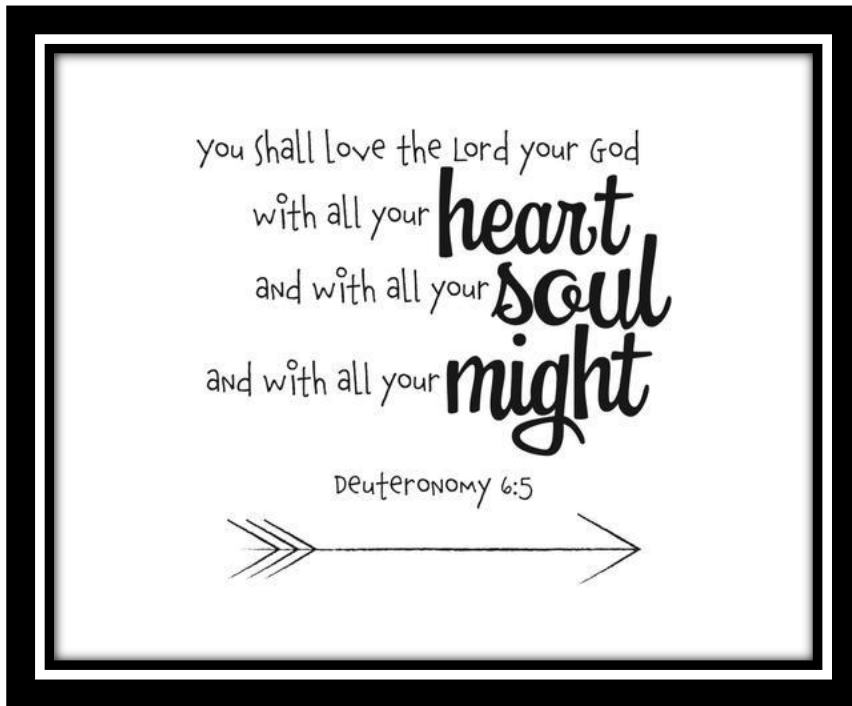 you shall love the Lord your God
with all your heart
and with all your soul
and with all your might
Deuteronomy 6:5